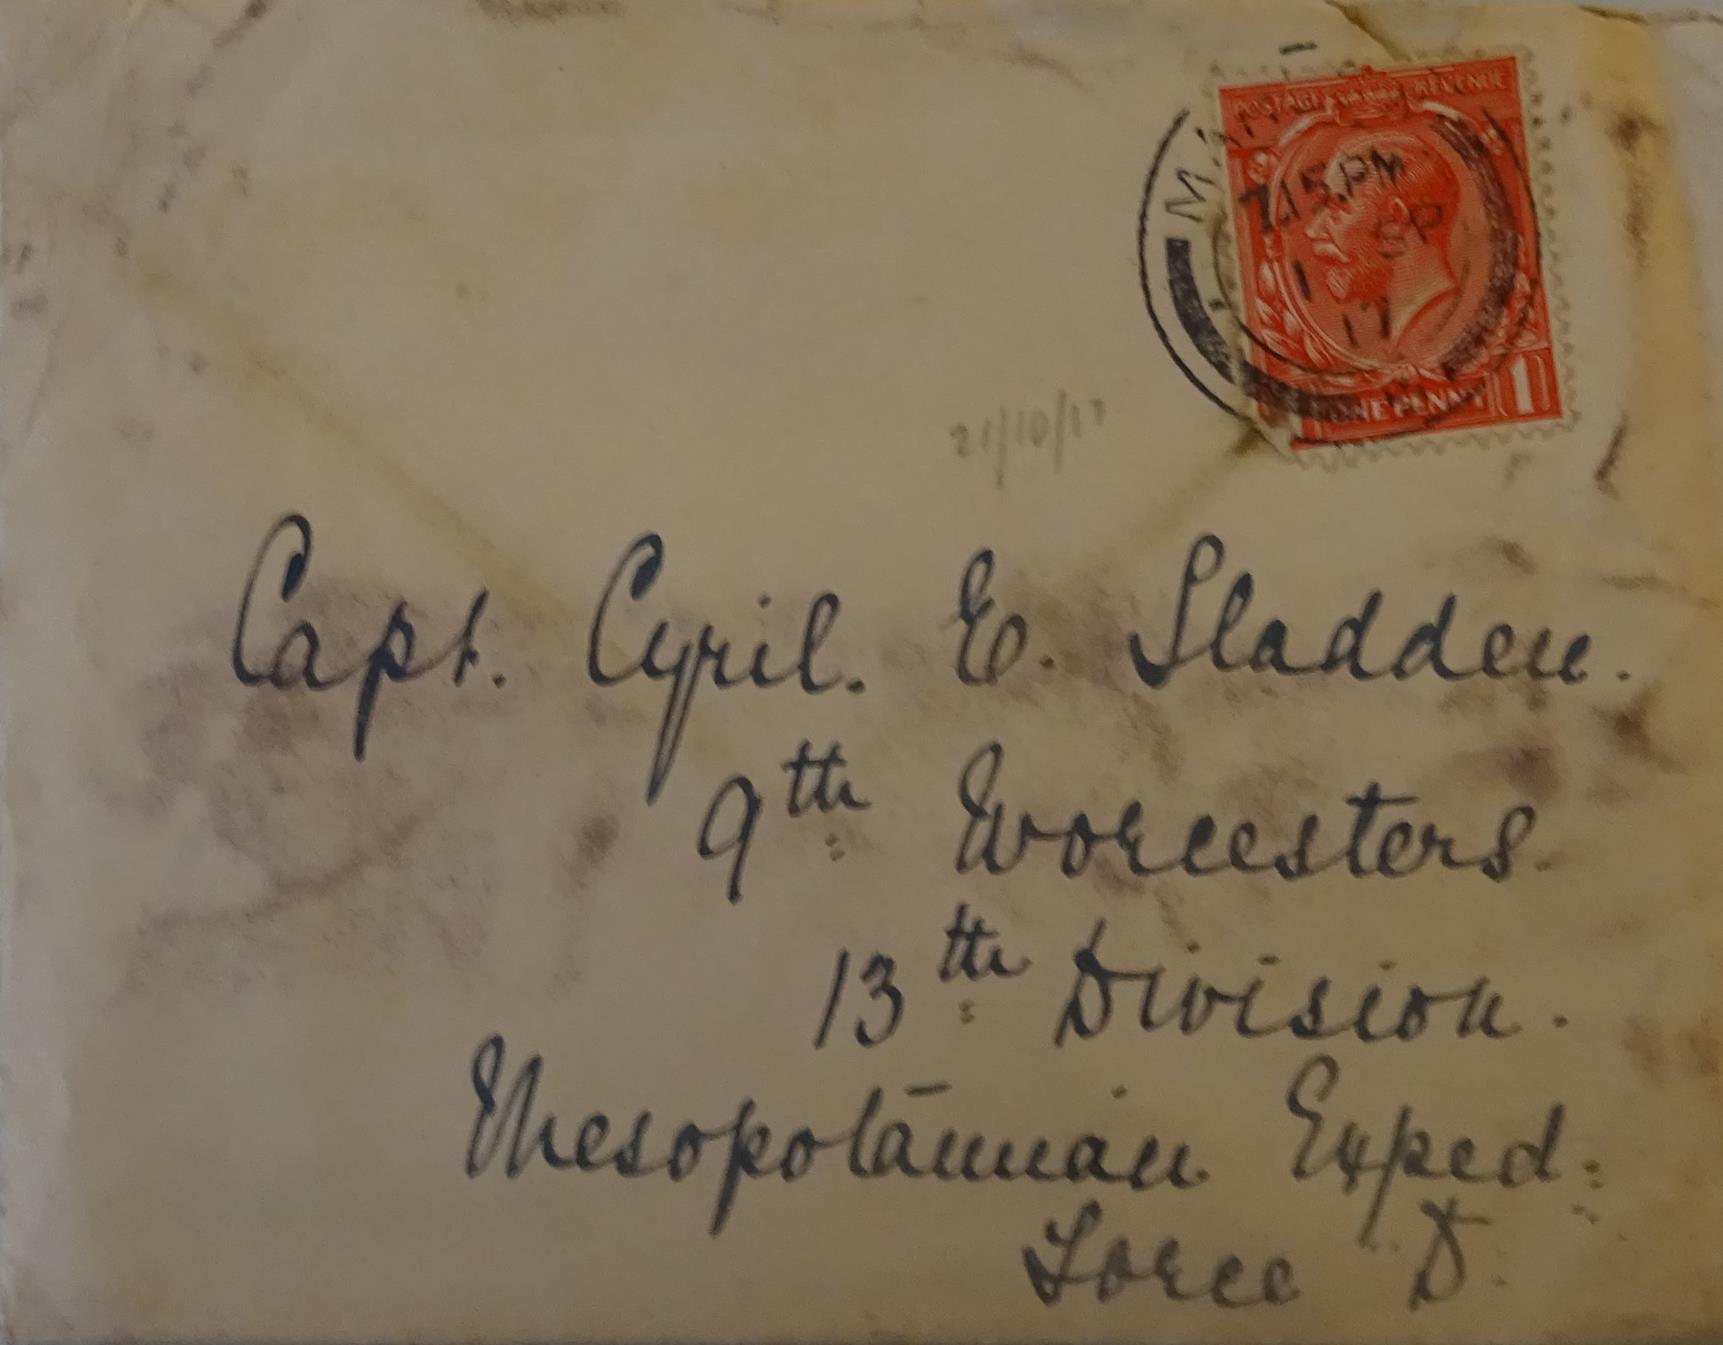 POSTAGE REVENUE
7.15 PM
1 SP
17
ONE PENNY 1
21/10/17
Capt. Cyril. E. Sladden.
9th Worcesters.
13th Division.
Mesopotāmian Exped:
Force D.